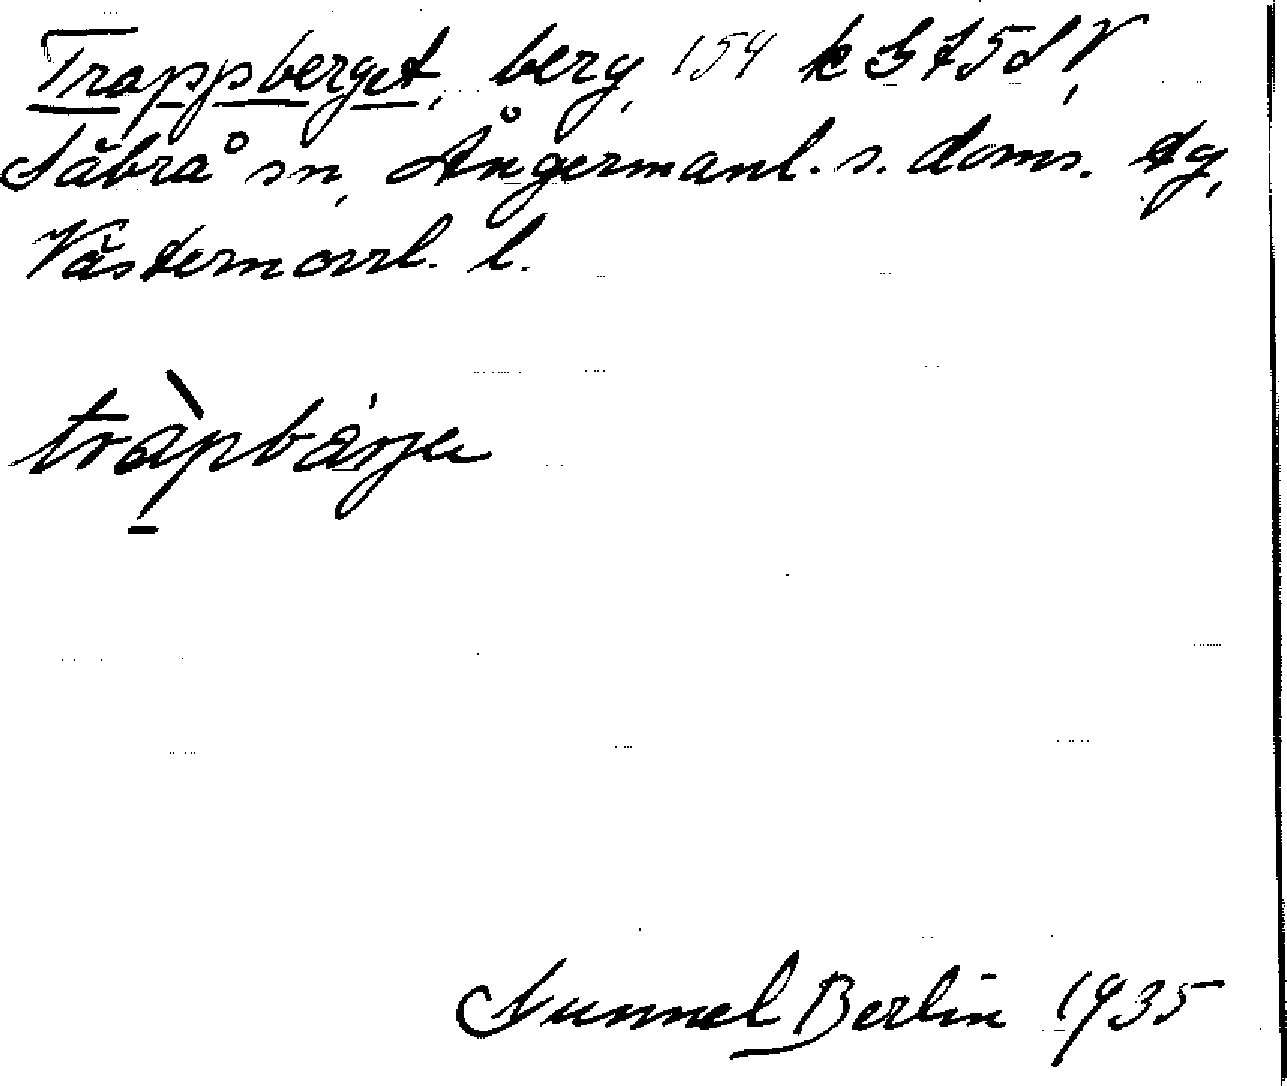 Trappberget, berg, 154 k G 75 d V,
Säbrå sn, Ångermanl. s. doms. tg,
Västernorrl. l.
tràpbárje
Gunnel Berlin 1935